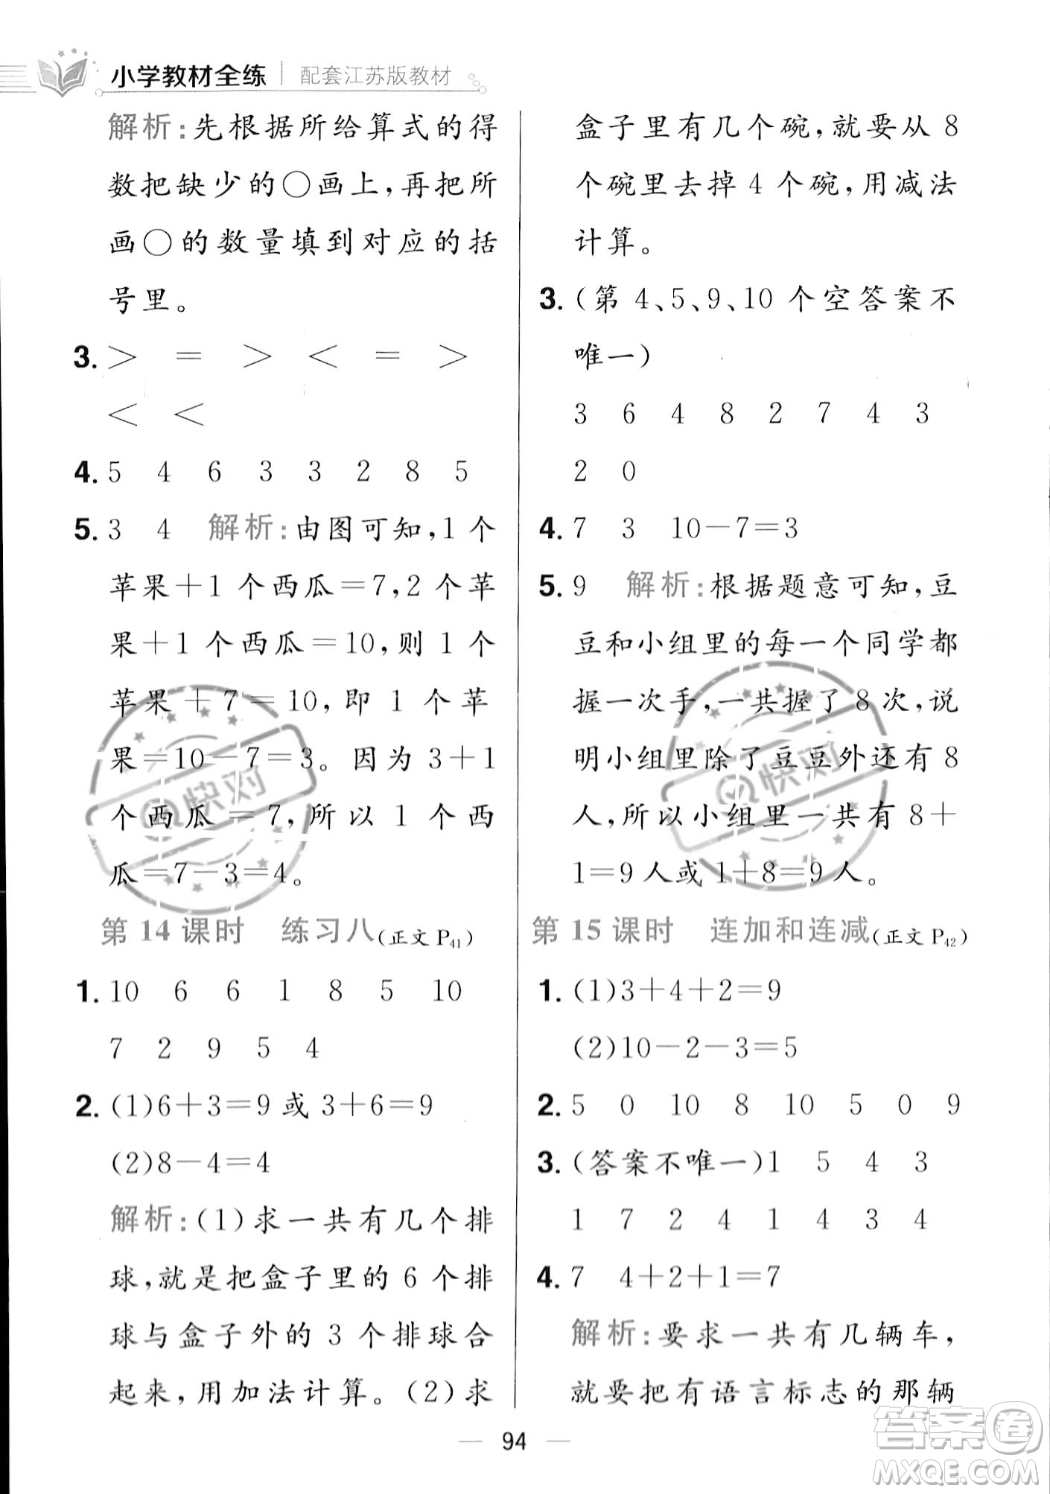 小学教材全练 配套江苏版教材
解析:先根据所给算式的得
数把缺少的○画上,再把所
画○的数量填到对应的括
号里。
3. ＞ ＝ ＞ ＜ ＝ ＞
＜ ＜
4. 5 4 6 3 3 2 8 5
5. 3 4 解析:由图可知,1个
苹果+1个西瓜=7,2个苹
果+1个西瓜=10,则1个
苹果+7=10,即1个苹
果=10-7=3。因为3+1
个西瓜=7,所以1个西
瓜=7-3=4。
第14课时 练习八(正文 P41)
1. 10 6 6 1 8 5 10
7 2 9 5 4
2. (1)6+3=9或3+6=9
(2)8-4=4
解析:(1)求一共有几个排
球,就是把盒子里的6个排
球与盒子外的3个排球合
起来,用加法计算。(2)求
盒子里有几个碗,就要从8
个碗里去掉4个碗,用减法
计算。
3. (第4、5、9、10个空答案不
唯一)
3 6 4 8 2 7 4 3
2 0
4. 7 3 10-7=3
5. 9 解析:根据题意可知,豆
豆和小组里的每一个同学都
握一次手,一共握了8次,说
明小组里除了豆豆外还有8
人,所以小组里一共有8+
1=9人或1+8=9人。
第15课时 连加和连减(正文 P42)
1. (1)3+4+2=9
(2)10-2-3=5
2. 5 0 10 8 10 5 0 9
3. (答案不唯一)1 5 4 3
1 7 2 4 1 4 3 4
4. 7 4+2+1=7
解析:要求一共有几辆车,
就要把有语言标志的那辆
94
快对
快对
答案卷
MXQE.COM